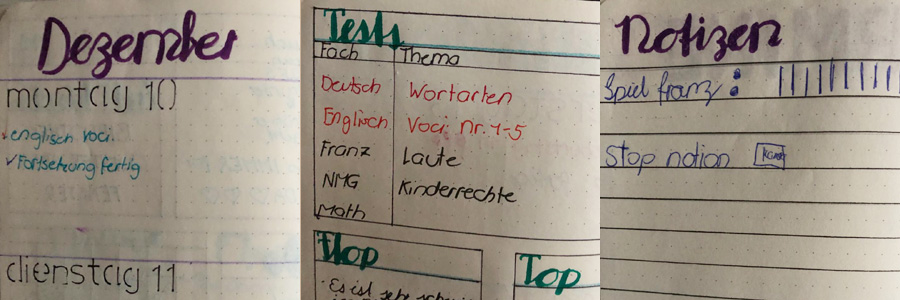 Dezember
montag 10
englisch voci.
✓Fortsetzung fertig
dienstag 11
Tests
Fach Thema
Deutsch Wortarten
Englisch Voci Nr. 1-5
Franz Laute
NMG Kinderrechte
Math
Flop
· Es ist sehr
Top
Notizen
Spiel franz :
Stop notion